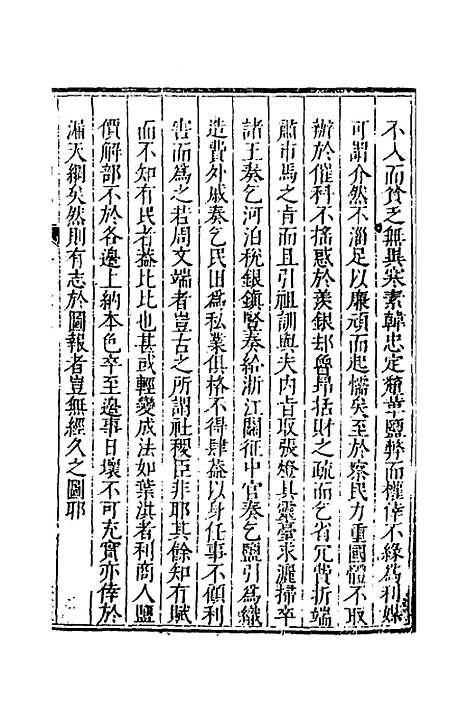 不入而貧乏無與寒素韓忠定釐革鹽弊而權倖不緣爲利媒
可謂介然不淄足以廉頑而起懦矣至於察民力重國體不取
辦於催科不搖惑於羨銀却魯昂括財之疏而乞省冗費折端
肅市馬之肯而且引祖訓與夫内肯取張燈具靈臺求灑掃卒
諸王奏乞河泊稅銀鎮豎奏給浙江關征中官奏乞鹽引爲織
造費外戚奏乞民田爲私業俱格不得肆葢以身任事不顧利
害而爲之若周文端者豈古之所謂社稷臣非耶其餘知有賦
而不知有民者葢比比也甚或輕變成法如葉淇者利商人鹽
價解部不於各邊上納本色卒至邊事日壞不可充實亦倖於
漏天網矣然則有志於圖報者豈無經久之圖耶